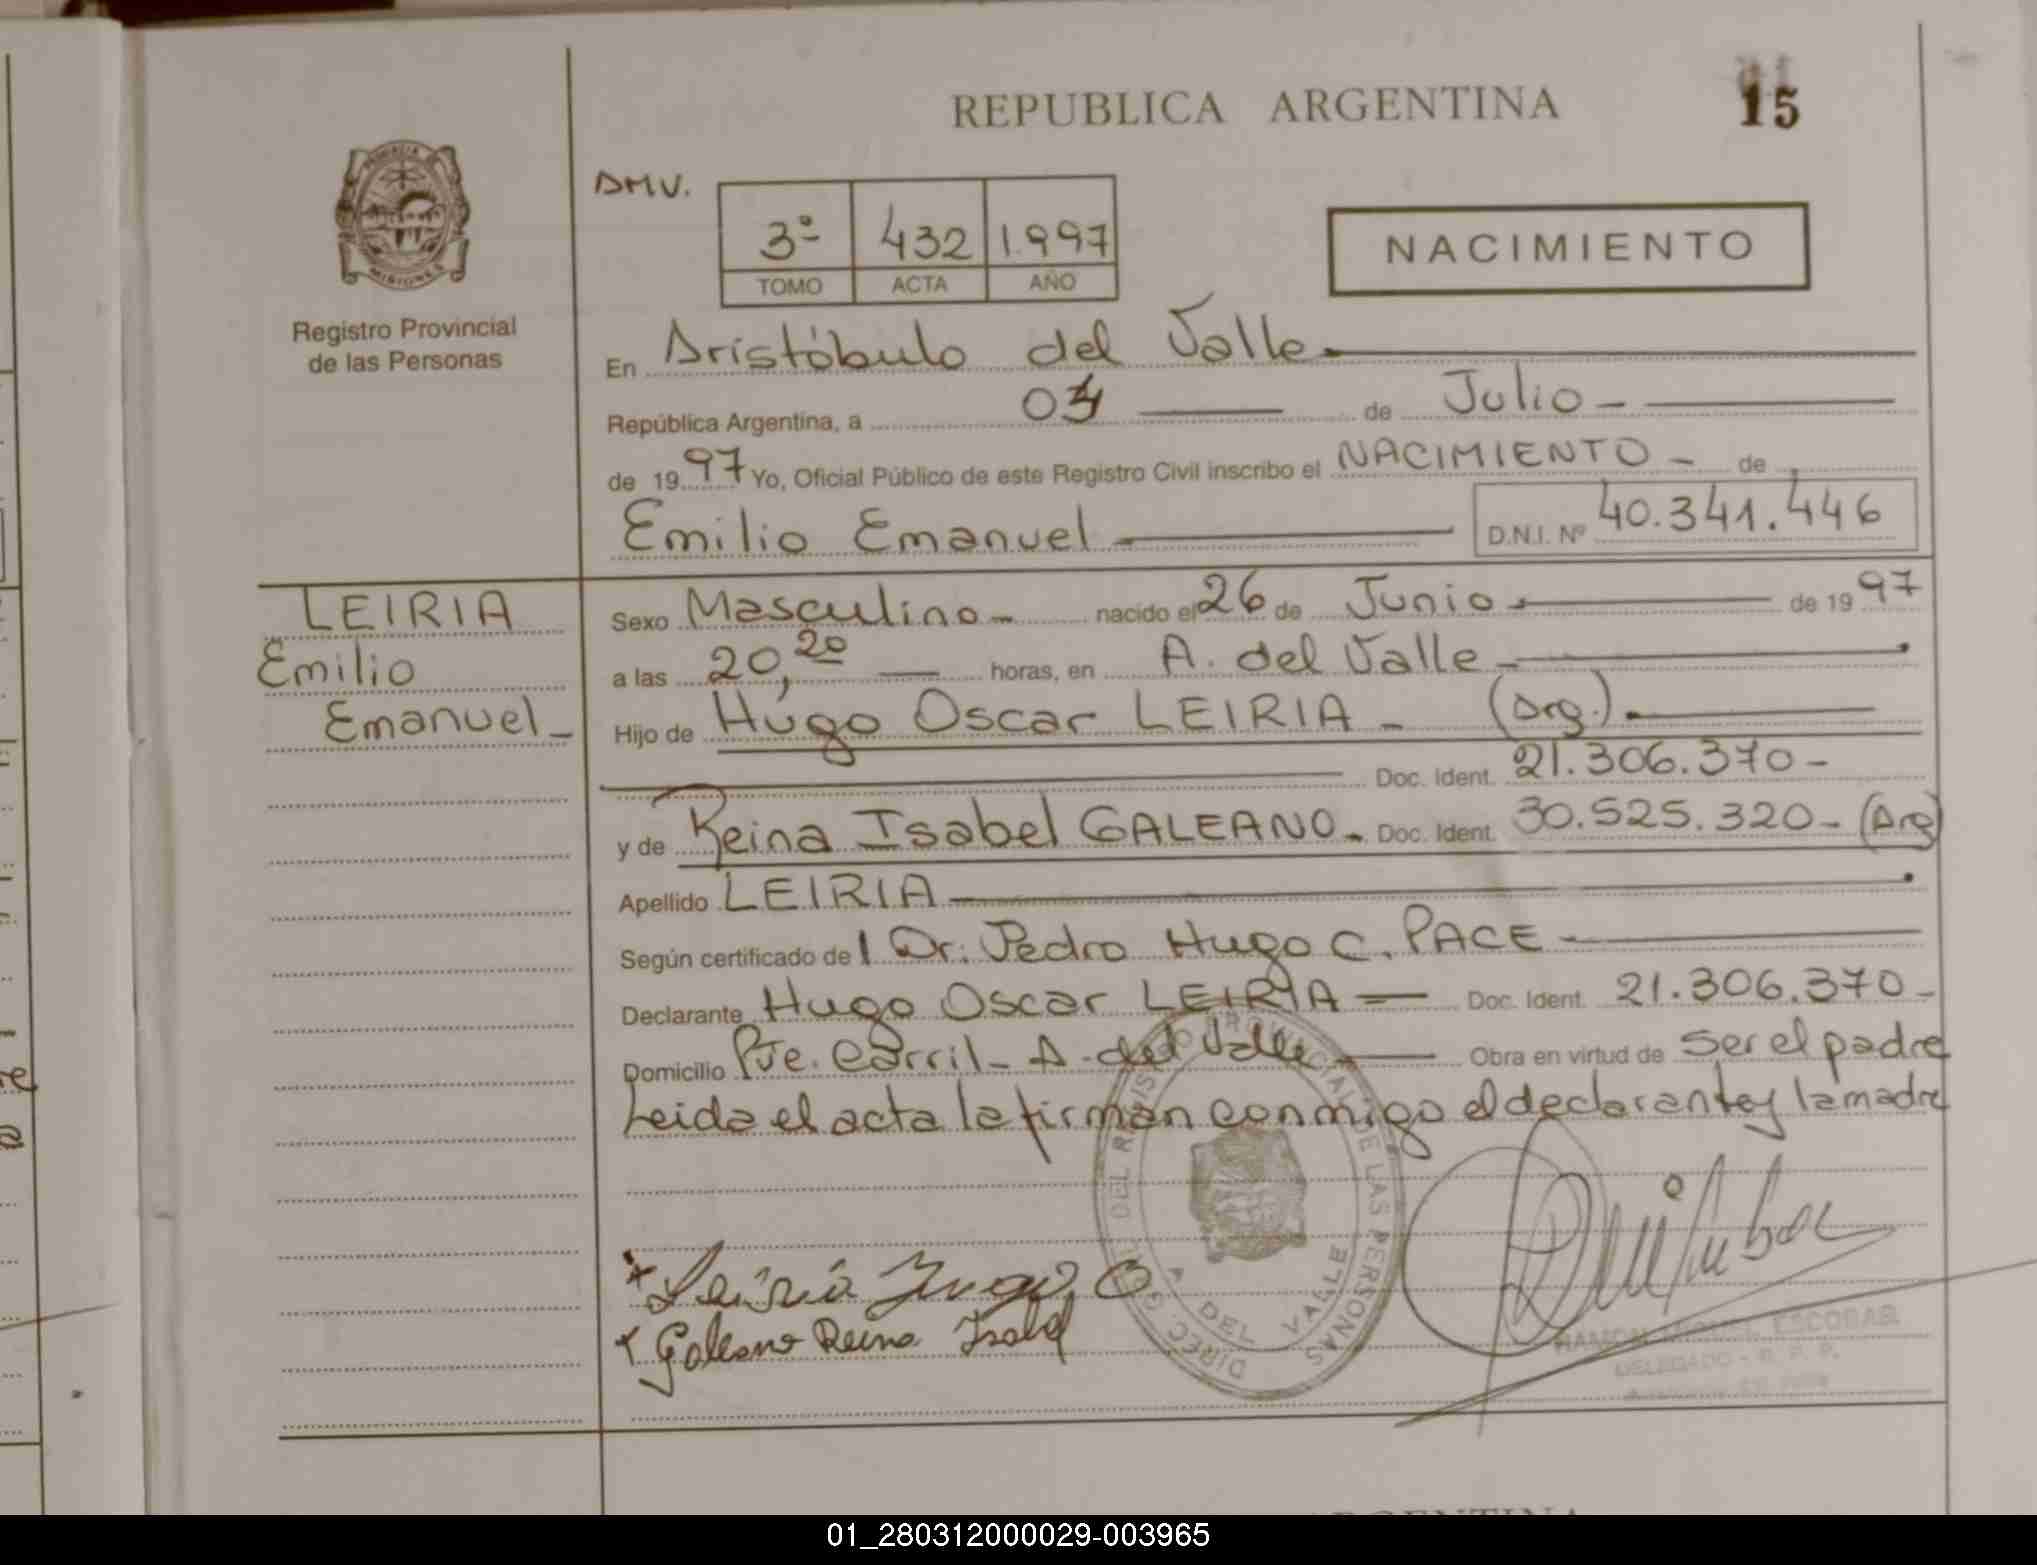 REPUBLICA ARGENTINA
15
DMV.
3º 432 1.997
TOMO ACTA AÑO
NACIMIENTO
PROVINCIA
MISIONES
Registro Provincial
de las Personas
En Aristóbulo del Valle
República Argentina, a 04 de Julio
de 1997 Yo, Oficial Público de este Registro Civil inscribo el NACIMIENTO de
Emilio Emanuel D.N.I. Nº 40.341.446
LEIRIA
Emilio
Emanuel
Sexo Masculino nacido el 26 de Junio de 1997
a las 20,20 horas, en A. del Valle
Hijo de Hugo Oscar LEIRIA (Arg.)
Doc. Ident. 21.306.370
y de Reina Isabel GALEANO Doc. Ident. 30.525.320 (Arg)
Apellido LEIRIA
Según certificado de l Dr. Pedro Hugo C. PACE
Declarante Hugo Oscar LEIRIA Doc. Ident. 21.306.370
Domicilio Pte. Carril - A. del Valle Obra en virtud de ser el padre
Leida el acta la firman conmigo el declarante y la madre
DEL REGISTRO PROVINCIAL DE LAS PERSONAS
A. DEL VALLE
x Leiria Hugo O
x Galeano Reina Isabel
RAMON MIGUEL ESCOBAR
DELEGADO - R. P. P.
01_280312000029-003965